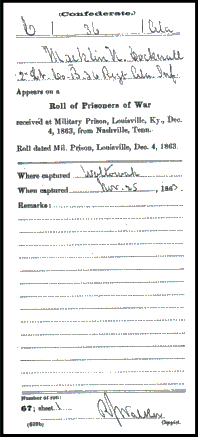 (Confederate.)
C | 36 | Ala
2" Lt. Co. 36 Regt Ala. Inf.
Appears on a
Roll of Prisoners of War
received at Military Prison, Louisville, Ky., Dec.
4, 1863, from Nashville, Tenn.
Roll dated Mil. Prison, Louisville, Dec. 4, 1863.
Where captured
When captured Nov. 25, 1863
Remarks:
Number of roll:
67; sheet 1
(639b) Copyist.